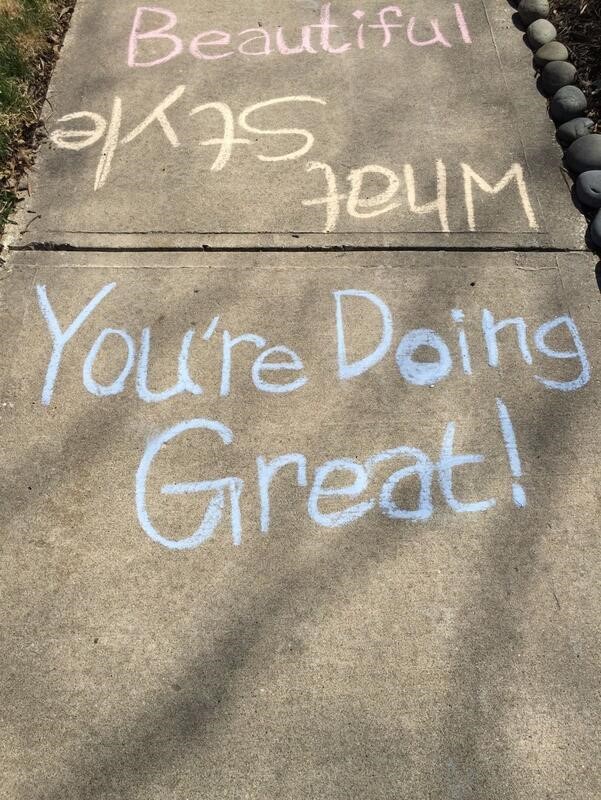 Beautiful
What
Style
You're Doing
Great!